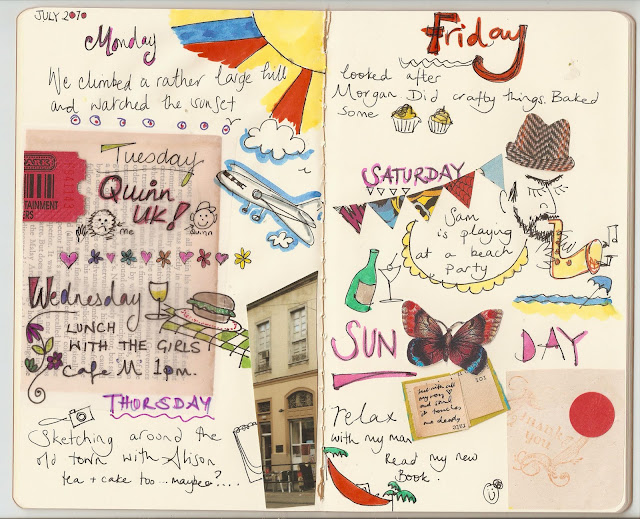 JULY 2010
Monday
We climbed a rather large hill
and watched the sunset
Tuesday
Quinn
UK!
me
Quinn
Wednesday
LUNCH
WITH THE GIRLS
Cafe M' 1pm.
THURSDAY
Sketching around the
old town with Alison
tea + cake too ... maybee?....
Friday
looked after
Morgan. Did crafty things. Baked
some
SATURDAY
Sam
is playing
at a beach
Party
SUN DAY
but with all
my
and
it touches
me deeply
101
relax
with my man
Read my new
Book.
thank
you